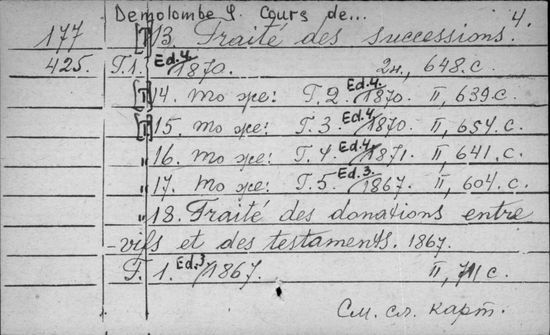 Demolombe Q. Cours de... 4.
177 [T] 13 Traité des successions.
425. T.1. Ed.4. 1870. 2н., 648.с.
[T] 14. то же: T.2. Ed.4. 1870. II, 639.с.
[T] 15. то же: T.3. Ed.4. 1870. II, 654.с.
" 16. то же: T.4. Ed.4. 1871. II, 641.с.
" 17. то же: T.5. Ed.3. 1867. II, 604.с.
" 18. Traité des donations entre
-vifs et des testaments. 1867.
T. 1. Ed.3. 1867. II, 711 с.
См. сл. карт.